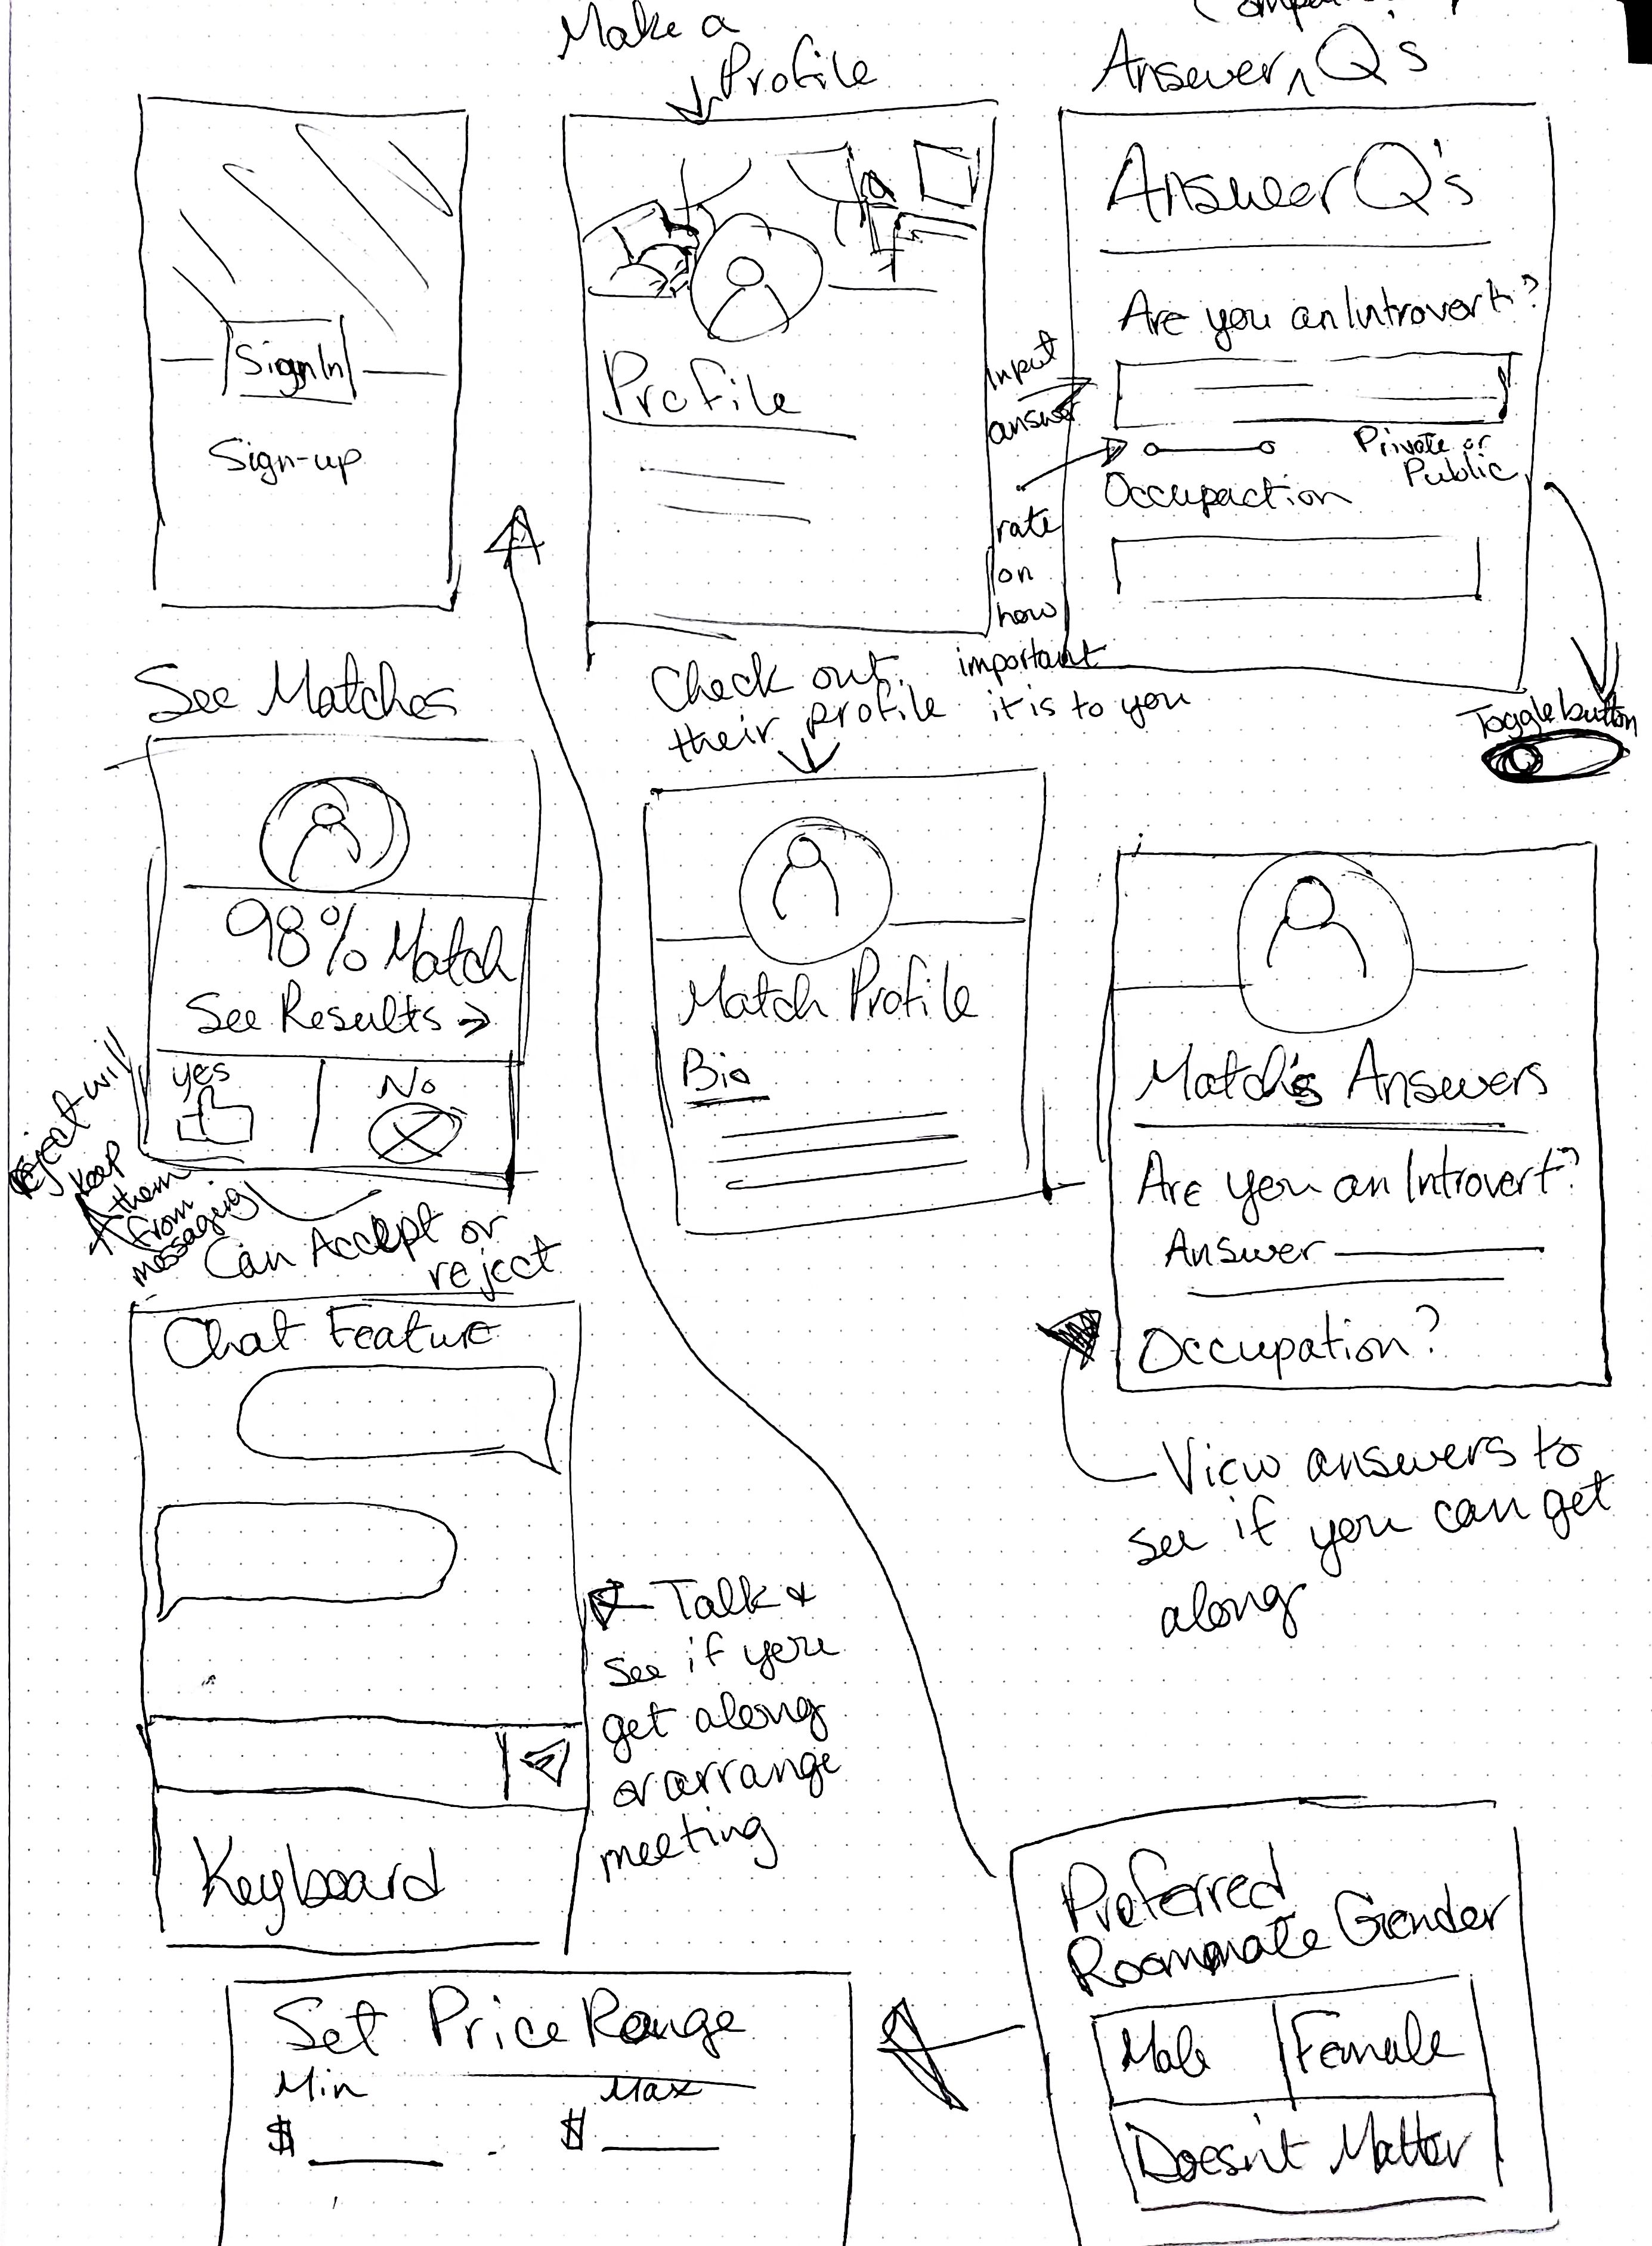 Make a
Profile
Answer ^ Q's
Sign In
Sign-up
Profile
Answer Q's
Are you an Introvert?
Input
answer
Private or
Public
Occupaction
rate
on
how
important
it is to you
Toggle button
See Matches
98% Match
See Results →
yes
No
Reject will
keep
them
from
messaging
Can Accept or
reject
Check out
their profile
Match Profile
Bio
Match's Answers
Are you an Introvert?
Answer
Occupation?
View answers to
see if you can get
along
Chat Feature
Keyboard
Talk &
see if you
get along
or arrange
meeting
Preferred
Roommate Gender
Male
Female
Doesn't Matter
Set Price Range
Min
Max
$
$